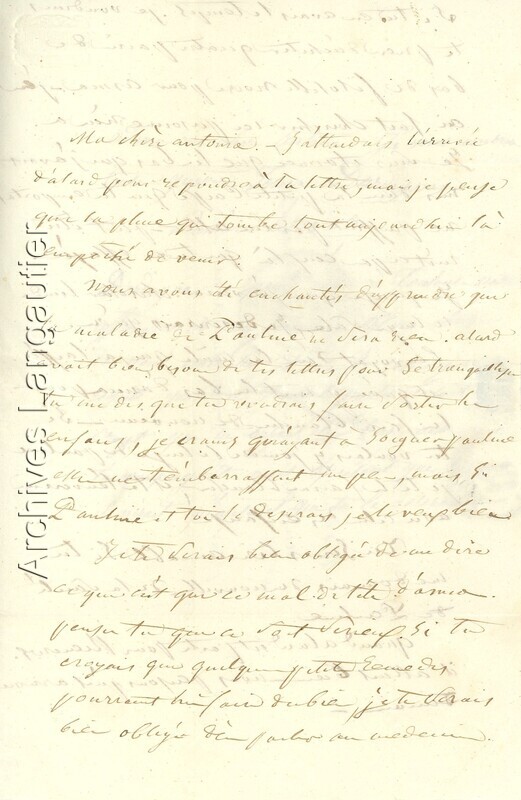 Ma chère antonia. - J'attendais l'arrivée
d'alard pour repondre à ta lettre, mais je pense
que la pluie qui tombe tout aujourd'hui l'a
empeché de venir.
Nous avons été enchantés d'apprendre que
la maladie de Pauline ne sera rien. alard
avait bien besoin de tes lettres pour se tranquilliser
tu me dis que tu voudrais faire sortir les
enfans, je crains qu'ayant a soigner pauline
elles ne t'embarrassent un peu, mais si
Pauline et toi le desirais je le veux bien
Je te serais bien obligée de me dire
ce que c'est que ce mal de tête
penses tu que ce soit serieux. Si tu
croyais que quelque petits remedes
pourraient lui faire du bien, je te serais
bien obligée d'en parler au medecin.
Archives Langautier